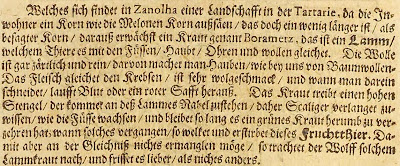 Welches sich findet in Zanolha einer Landschafft in der Tartarie, da die Jn-
wohner ein Korn wie die Melonen Korn außsäen / das doch ein wenig länger ist / als
besagter Korn / darauß erwächst ein Kraut genant Borametz, das ist ein Lamm/
welchem Thier es mit den Füssen / Haubt / Ohren und wollen gleichet. Die Wolle
ist gar zärtlich und rein / darvon machet man Hauben / wie bey uns von Baumwollen.
Das Fleisch gleichet den Krebsen / ist sehr wolgeschmack / und wann man darein
schneidet / laufft Blut oder ein roter Safft herauß. Das Kraut treibt einen hohen
Stengel / der kommet an deß Lammes Nabel zustehen / daher Scaliger verlanget zu-
wissen / wie die Füsse wachsen / und bleibet so lang es ein grünes Kraut herumb zu ver-
zehren hat: wann solches vergangen / so welket und erstirbet dieses Frucht Thier. Da-
mit aber an der Gleichniß nichts ermanglen möge / so trachtet der Wolff solchem
Lammkraut nach / und frisset es lieber / als nichts anders.